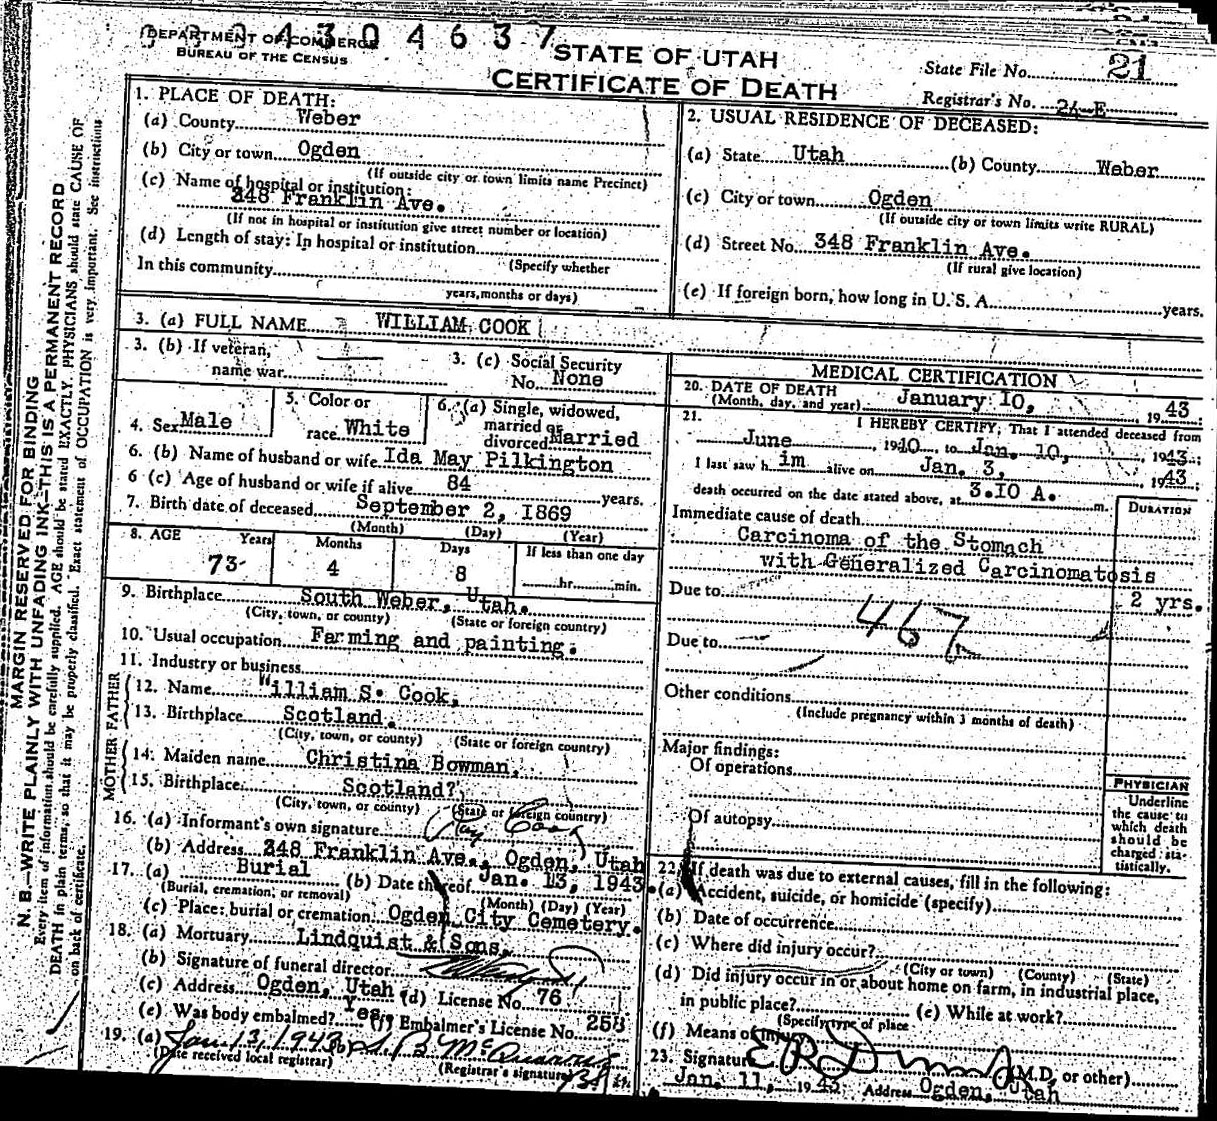 DEPARTMENT OF COMMERCE
BUREAU OF THE CENSUS
4 3 0 4 6 3 7
STATE OF UTAH
CERTIFICATE OF DEATH
State File No. 21
Registrar's No. 24-E
MARGIN RESERVED FOR BINDING
N. B.—WRITE PLAINLY WITH UNFADING INK—THIS IS A PERMANENT RECORD
Every item of information should be carefully supplied. AGE should be stated EXACTLY. PHYSICIANS should state CAUSE OF
DEATH in plain terms, so that it may be properly classified. Exact statement of OCCUPATION is very important. See instructions
on back of certificate.
1. PLACE OF DEATH:
(a) County Weber
(b) City or town Ogden
(If outside city or town limits name Precinct)
(c) Name of hospital or institution:
348 Franklin Ave.
(If not in hospital or institution give street number or location)
(d) Length of stay: In hospital or institution
(Specify whether
In this community
years, months or days)
2. USUAL RESIDENCE OF DECEASED:
(a) State Utah (b) County Weber
(c) City or town Ogden
(If outside city or town limits write RURAL)
(d) Street No. 348 Franklin Ave.
(If rural give location)
(e) If foreign born, how long in U. S. A. years.
3. (a) FULL NAME WILLIAM COOK
3. (b) If veteran,
name war
3. (c) Social Security
No. None
4. Sex Male
5. Color or
race White
6. (a) Single, widowed,
married or
divorced Married
6. (b) Name of husband or wife Ida May Pilkington
6 (c) Age of husband or wife if alive 84 years.
7. Birth date of deceased September 2, 1869
(Month) (Day) (Year)
8. AGE Years Months Days If less than one day
73 4 8 hr. min.
9. Birthplace South Weber, Utah.
(City, town, or county) (State or foreign country)
10. Usual occupation Farming and painting.
11. Industry or business
FATHER
12. Name William S. Cook,
13. Birthplace Scotland.
(City, town, or county) (State or foreign country)
MOTHER
14. Maiden name Christina Bowman,
15. Birthplace Scotland?
(City, town, or county) (State or foreign country)
16. (a) Informant's own signature Ray Cook
(b) Address 348 Franklin Ave., Ogden, Utah
17. (a) Burial (b) Date thereof Jan. 13, 1943.
(Burial, cremation, or removal) (Month) (Day) (Year)
(c) Place: burial or cremation Ogden City Cemetery.
18. (a) Mortuary Lindquist & Sons,
(b) Signature of funeral director
(c) Address Ogden, Utah (d) License No. 76
(e) Was body embalmed? Yes. (f) Embalmer's License No. 258
19. (a) Jan 13, 1943 (b)
(Date received local registrar) (Registrar's signature)
MEDICAL CERTIFICATION
20. DATE OF DEATH January 10, 1943.
(Month, day, and year)
21. I HEREBY CERTIFY, That I attended deceased from
June, 1940 to Jan. 10, 1943;
I last saw him alive on Jan. 3, 1943;
death occurred on the date stated above, at 3.10 A. m.
DURATION
Immediate cause of death
Carcinoma of the Stomach
with Generalized Carcinomatosis
2 yrs.
Due to
467
Due to
Other conditions
(Include pregnancy within 3 months of death)
Major findings:
Of operations
Of autopsy
PHYSICIAN
Underline
the cause to
which death
should be
charged sta-
tistically.
22. If death was due to external causes, fill in the following:
(a) Accident, suicide, or homicide (specify)
(b) Date of occurrence
(c) Where did injury occur?
(City or town) (County) (State)
(d) Did injury occur in or about home on farm, in industrial place,
in public place? (e) While at work?
(Specify type of place
(f) Means of
23. Signature (M.D. or other)
Jan. 11, 1943. Address Ogden, Utah